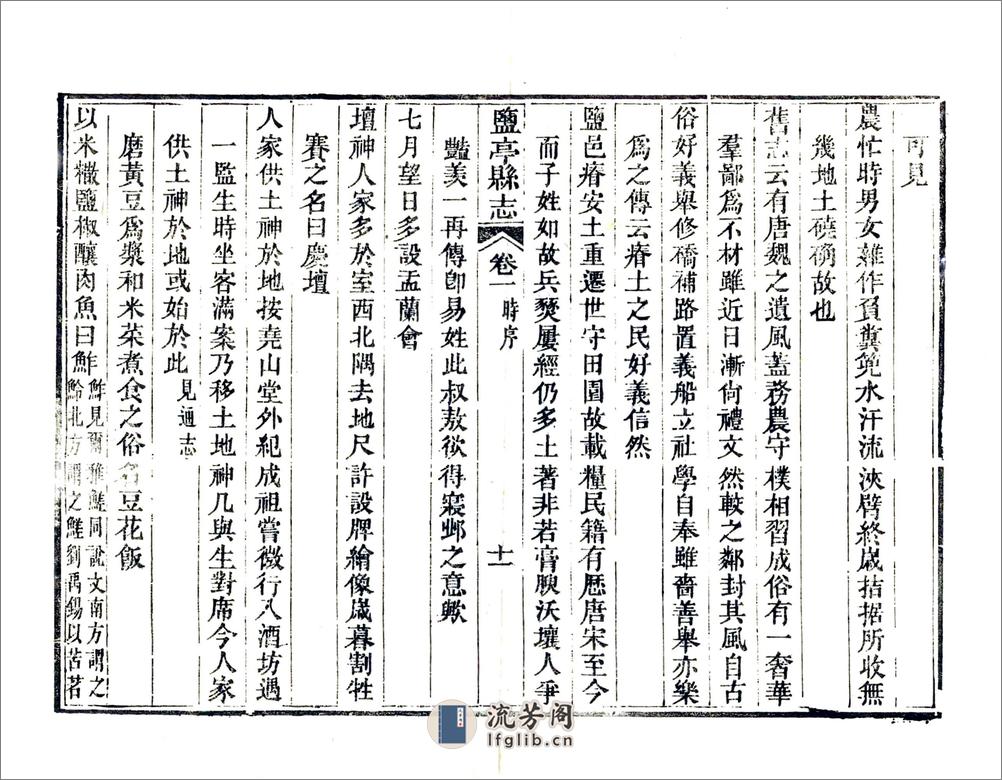 可見
農忙時男女雜作負糞㪺水汗流浹臂終歲拮据所收無
幾地土磽确故也
舊志云有唐魏之遺風葢務農守樸相習成俗有一奢華
羣鄙爲不材雖近日漸尙禮文然較之鄰封其風自古
俗好義舉修橋補路置義船立社學自奉雖嗇善舉亦樂
爲之傳云瘠土之民好義信然
鹽邑瘠安土重遷世守田園故載糧民籍有歷唐宋至今
而子姓如故兵燹屢經仍多土著非若膏腴沃壤人爭
鹽亭縣志 卷一 時序 十一
豔羡一再傳卽易姓此叔敖欲得寢邱之意歟
七月望日多設盂蘭會
壇神人家多於室西北隅去地尺許設牌繪像歲暮割牲
賽之名曰慶壇
人家供土神於地按堯山堂外紀成祖嘗微行入酒坊遇
一監生時坐客滿案乃移土地神几與生對席今人家
供土神於地或始於此見通志
磨黃豆爲漿和米菜煮食之俗名豆花飯
以米糝鹽椒釀肉魚曰鮓鮓見爾雅䱹同說文南方謂之䰼北方謂之䱹劉禹錫以苦茗
流芳阁
lfglib.cn